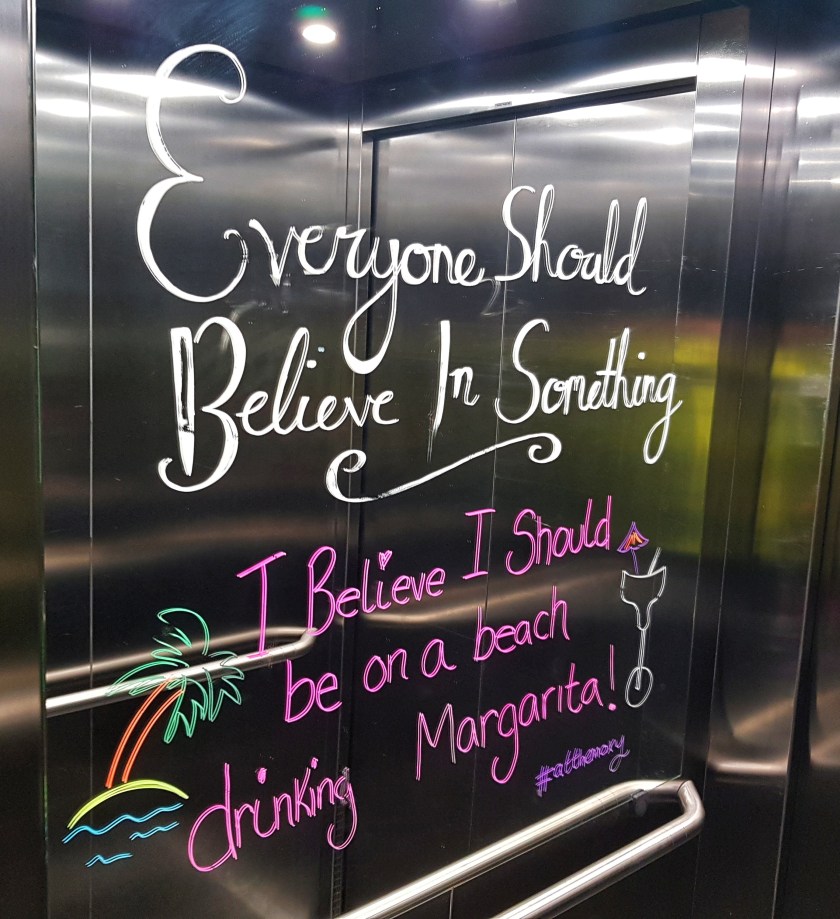 Everyone Should
Believe In Something
I Believe I Should
be on a beach
drinking Margarita!